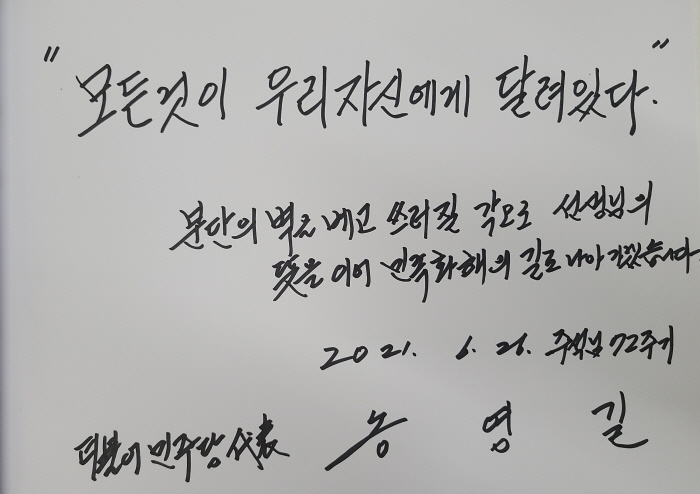 "모든것이 우리자신에게 달려있다."
분단의 벽을 베고 쓰러질 각오로 선생님의
뜻을 이어 민족화해의 길로 나아가겠습니다
2021. 6. 26. 주석님 72주기
더불어민주당 代表 송 영 길